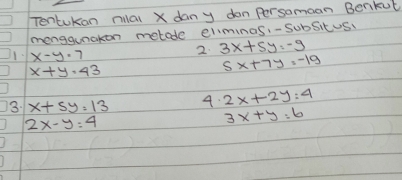 Tentukan nilai x dan y dan Persamaan Berikut
menggunakan metode eliminasi-Subsitusi
1. x-y=7
x+y=43
2. 3x+5y=-9
5x+7y=-19
3. x+5y=13
2x-y=4
4. 2x+2y=4
3x+y=6